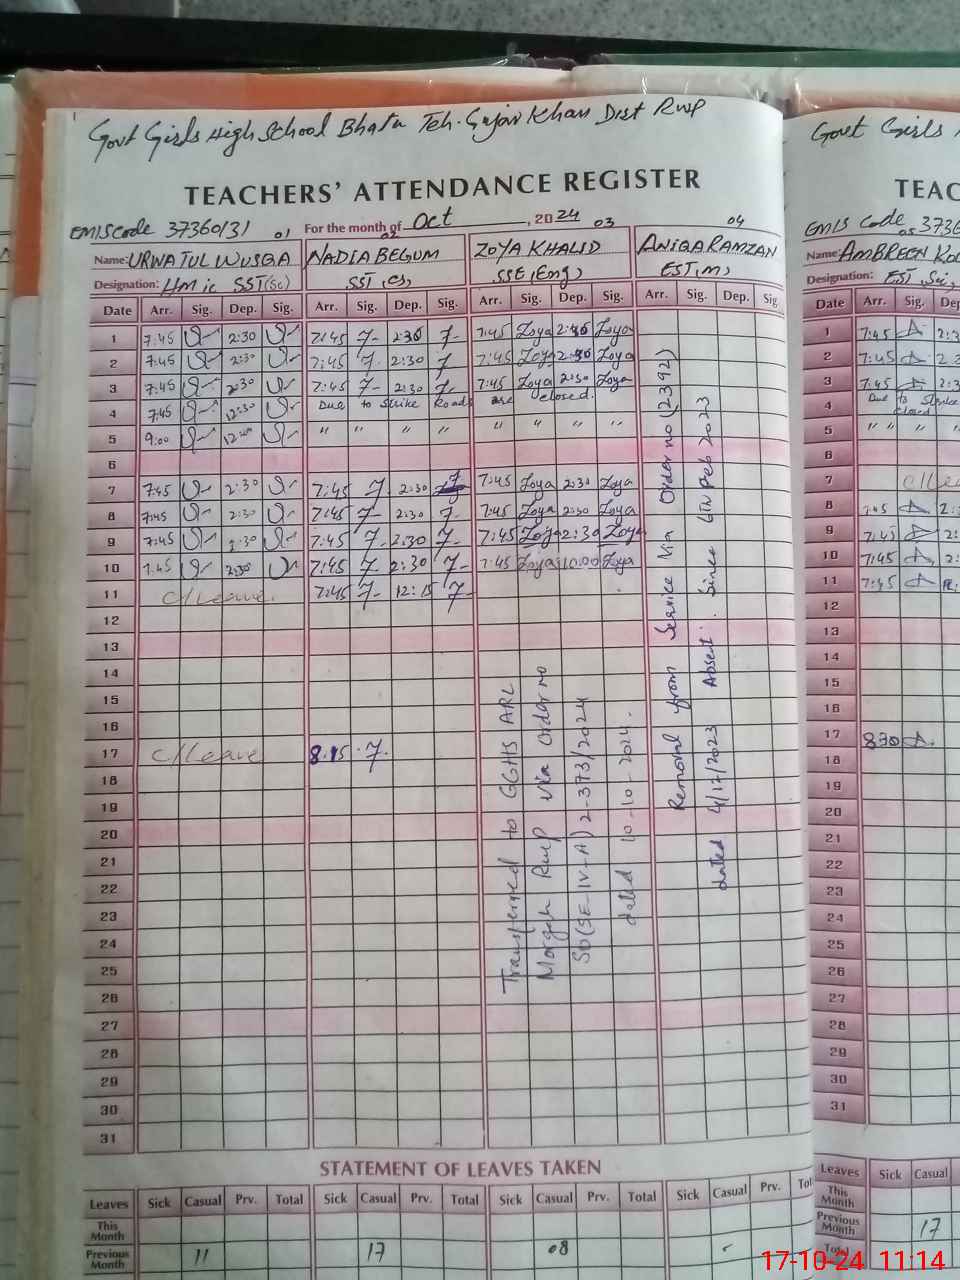 Govt Girls High School Bhata Teh. Gujar Khan Dist Rwp
TEACHERS' ATTENDANCE REGISTER
EMIS code 37360131 For the month of Oct, 2024
01 02 03 04
Name: URWATUL WUSQA NADIA BEGUM ZOYA KHALID ANIQA RAMZAN
Designation: HM ic SST(Sc) SST (cs) SSE (Eng) EST (m)
Date Arr. Sig. Dep. Sig. Arr. Sig. Dep. Sig. Arr. Sig. Dep. Sig. Arr. Sig. Dep. Sig
1 7:45 2:30 7:45 2:30 7:45 Zoya 2:30 Zoya
2 7:45 2:30 7:45 2:30 7:45 Zoya 2:30 Zoya
3 7:45 2:30 7:45 2:30 7:45 Zoya 2:30 Zoya
4 7:45 12:30 Due to Strike Roads are closed.
5 9:00 " " " " " " " "
6
7 7:45 2:30 7:45 2:30 7:45 Zoya 2:30 Zoya
8 7:45 2:30 7:45 2:30 7:45 Zoya 2:30 Zoya
9 7:45 2:30 7:45 2:30 7:45 Zoya 2:30 Zoya
10 7:45 2:30 7:45 2:30 7:45 Zoya 10:00 Zoya
11 C/Leave 7:45 12:15
12
13
14
15
16
17 C/Leave 8:15
18
19
20
21
22
23
24
25
26
27
28
29
30
31
Transferred to GGHS ARL
Morgah Rwp via Order no
SO(SE-IV-A) 2-373/2024
dated 10-10-2024.
Removal from Service Via Order no (2392)
dated 4/12/2023 Absent. Since 6th Feb 2023
STATEMENT OF LEAVES TAKEN
Leaves Sick Casual Prv. Total Sick Casual Prv. Total Sick Casual Prv. Total Sick Casual Prv. Tot
This Month
Previous Month 11 17 08
Govt Girls
TEAC
EMIS Code 3736
05
Name: AMBREEN
Designation: EST Sci,
Date Arr. Sig. Dep.
1 7:45 2:3
2 7:45 2:3
3 7:45 2:3
4 Due to Strike closed
5 " " " "
6
7 C/Lea
8 7:45 2:
9 7:45 2:
10 7:45 2:
11 7:45
12
13
14
15
16
17 830
18
19
20
21
22
23
24
25
26
27
28
29
30
31
Leaves Sick Casual
This Month
Previous Month 17
Total
17-10-24 11:14